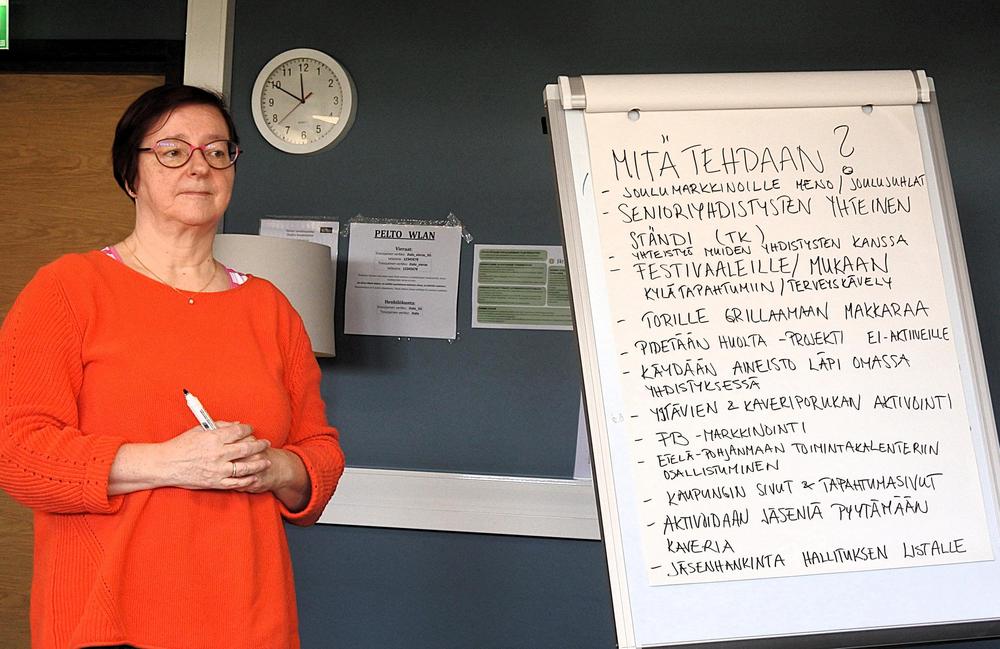 12
11
1
10
2
9
3
8
4
7
5
6
PELTO WLAN
Vieraat:
Henkilökunta:
MITÄ TEHDÄÄN?
- JOULUMARKKINOILLE MENO / JOULUJUHLAT
- SENIORIYHDISTYSTEN YHTEINEN
STÄNDI (TK)
- YHTEISTYÖ MUIDEN YHDISTYSTEN KANSSA
- FESTIVAALEILLE / MUKAAN
KYLÄTAPAHTUMIIN / TERVEYSKÄVELY
- TORILLE GRILLAAMAAN MAKKARAA
- PIDETÄÄN HUOLTA -PROJEKTI EI-AKTIIVEILLE
- KÄYDÄÄN AINEISTO LÄPI OMASSA
YHDISTYKSESSÄ
- YSTÄVIEN & KAVERIPORUKAN AKTIVOINTI
- FB -MARKKINOINTI
- ETELÄ-POHJANMAAN TOIMINTAKALENTERIIN
OSALLISTUMINEN
- KAUPUNGIN SIVUT & TAPAHTUMASIVUT
- AKTIVOIDAAN JÄSENIÄ PYYTÄMÄÄN
KAVERIA
- JÄSENHANKINTA HALLITUKSEN LISTALLE